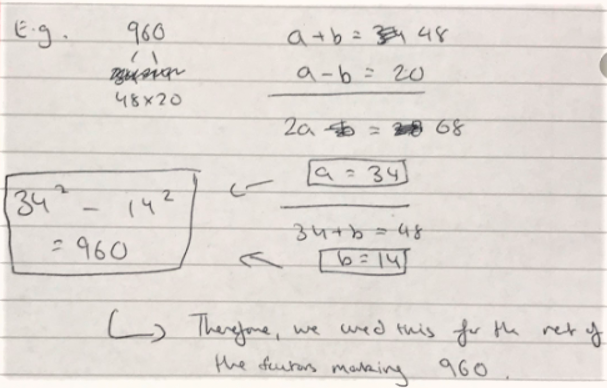 E.g. 960
48×20
a+b = 48
a-b = 20
2a = 68
a = 34
34+b = 48
b = 14
34² - 14²
= 960
↳ Therefore, we used this for the rest of
the factors making 960.